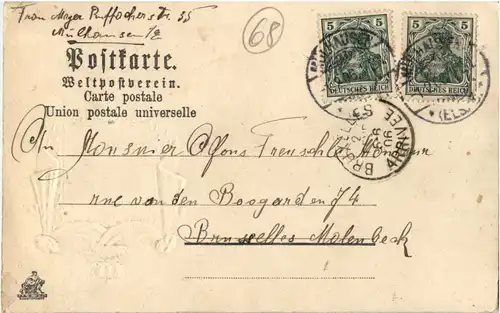 Frau Meyer Puffacherstr. 35
Mülhausen i/e
68
5 5
DEUTSCHES REICH DEUTSCHES REICH
MÜLHAUSEN
(ELS.)
ARRIVEE
06
Postkarte.
Weltpostverein.
Carte postale
Union postale universelle
An Monsieur Alfons
rue van den Boogarden 74
Bruxelles Molenbeek